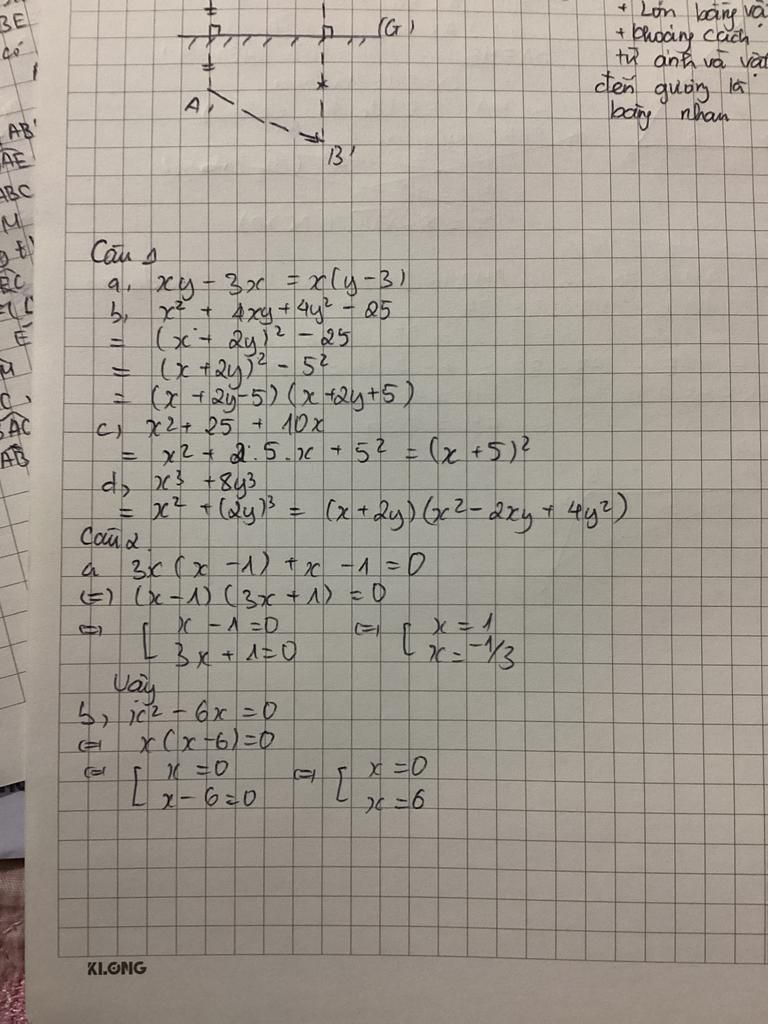 BE
có
AB'
AE
ABC
M
EC
E
M
C,
AC
AB
(G)
A,
B'
+ Lớn bằng vậ
+ khoảng cách
từ ảnh và vật
đến gương là
bằng nhau
Câu 1
a, xy - 3x = x(y-3)
b, x² + 4xy + 4y² - 25
= (x + 2y)² - 25
= (x+2y)² - 5²
= (x + 2y-5) (x+2y+5)
c) x² + 25 + 10x
= x² + 2.5.x + 5² = (x+5)²
d, x³ + 8y³
= x² + (2y)³ = (x+2y) (x² - 2xy + 4y²)
Câu 2
a 3x(x-1) + x - 1 = 0
(=) (x-1) (3x+1) = 0
⇔ [ x - 1 = 0 ⇔ [ x = 1
3x + 1 = 0 x = -1/3
Vậy
b, x² - 6x = 0
⇔ x(x-6) = 0
⇔ [ x = 0 ⇔ [ x = 0
x - 6 = 0 x = 6
KLONG